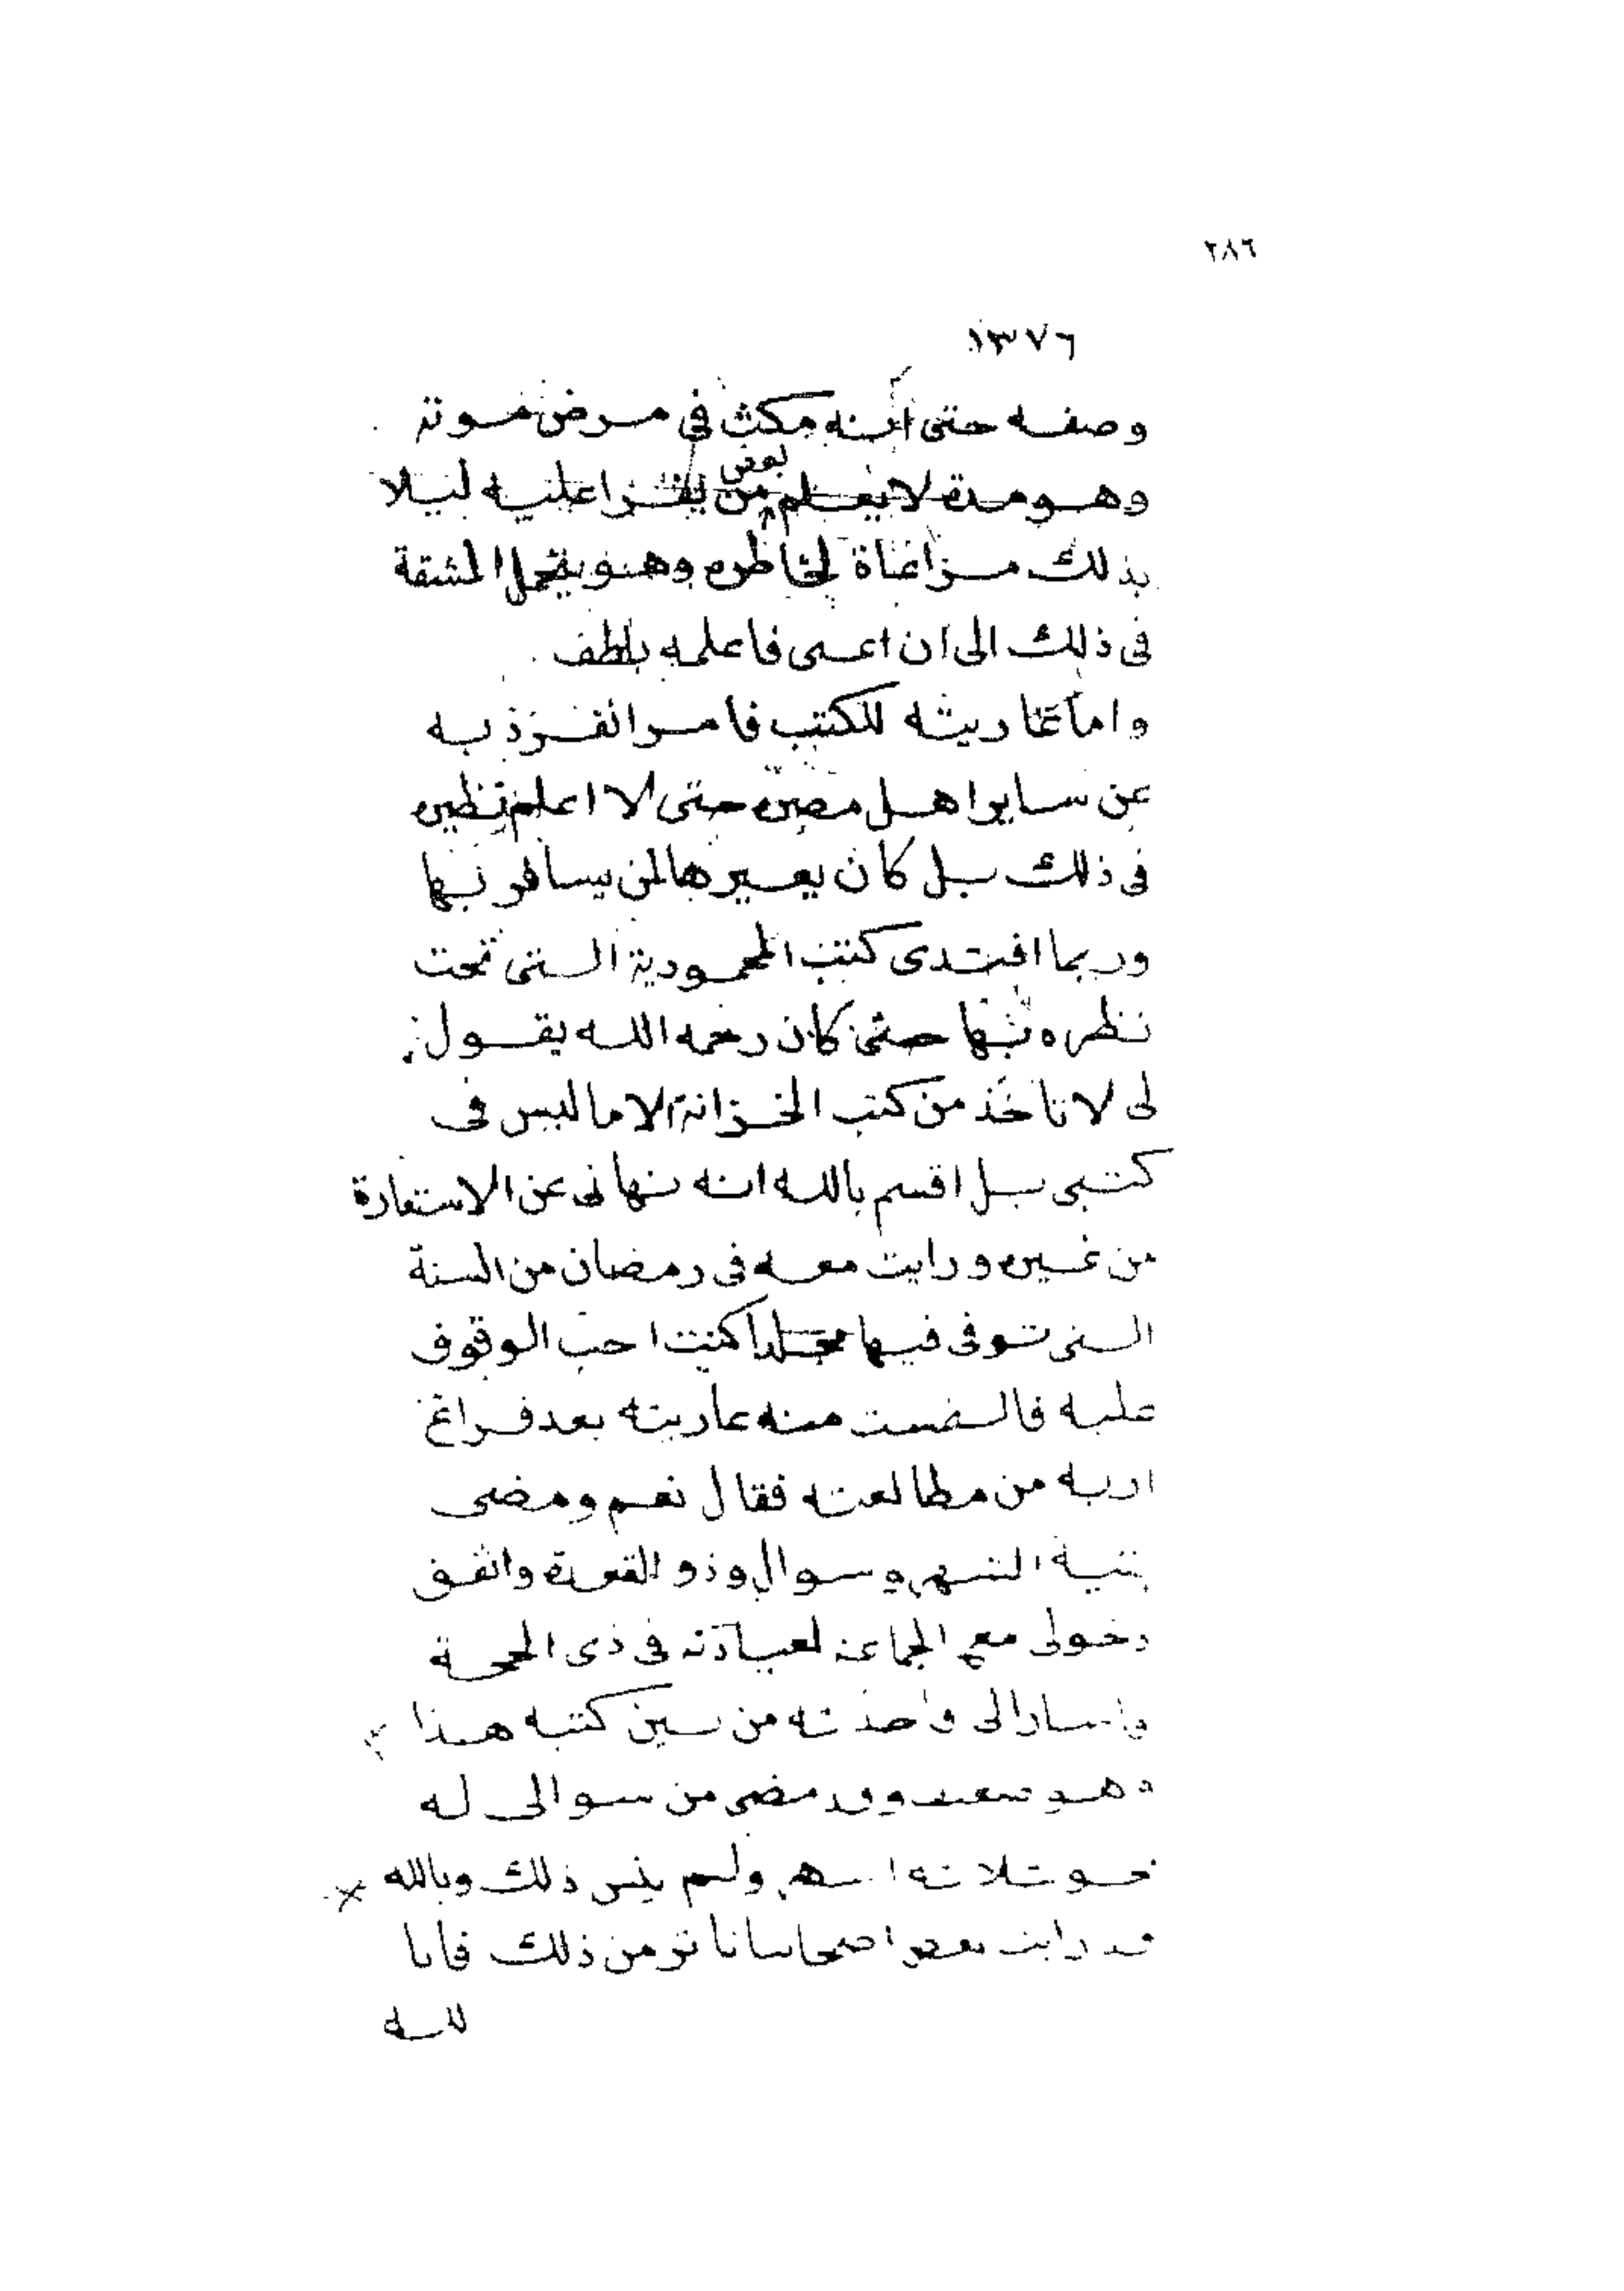 ٢٨٦
١٣٧٦
وصفه حتى انه مكث في مرض موته
وهو مدة لا يعلم بعض من يقرا عليه ليلا
بذلك مراعاة لخاطره وهو يتحمل المشقة
في ذلك الى ان اعمى فاعلمه بلطف
واما عاريته للكتب فامر انفرد به
عن ساير اهل مصره حتى لا اعلم نظيره
في ذلك بل كان يعيرها لمن يسافر بها
وربما افتدى كتب المحمودية التى تحت
نظره بها حتى كان رحمه الله يقول
لى لا تاخذ من كتب الخزانة الا ما ليس في
كتبى بل اقسم بالله انه نهانى عن الاستعارة
من غيره ورايت معه في رمضان من السنة
التى توفى فيها مجلدا كنت احب الوقوف
عليه فالتمست منه عاريته بعد فراغ
اربه من مطالعته فقال نعم ومضى
بقية الشهر وسوال وذو القعدة واتفق
دخولى مع الجماعة لعيادته في ذى الحجة
واسار الى واخذته من بين كتبه هذا
وهو ضعيف وقد مضى من سوالى له
نحو ثلاثة اسهر ولم ينس ذلك وبالله
قد رايت بعض اصحابنا تاثر من ذلك فانا
لله